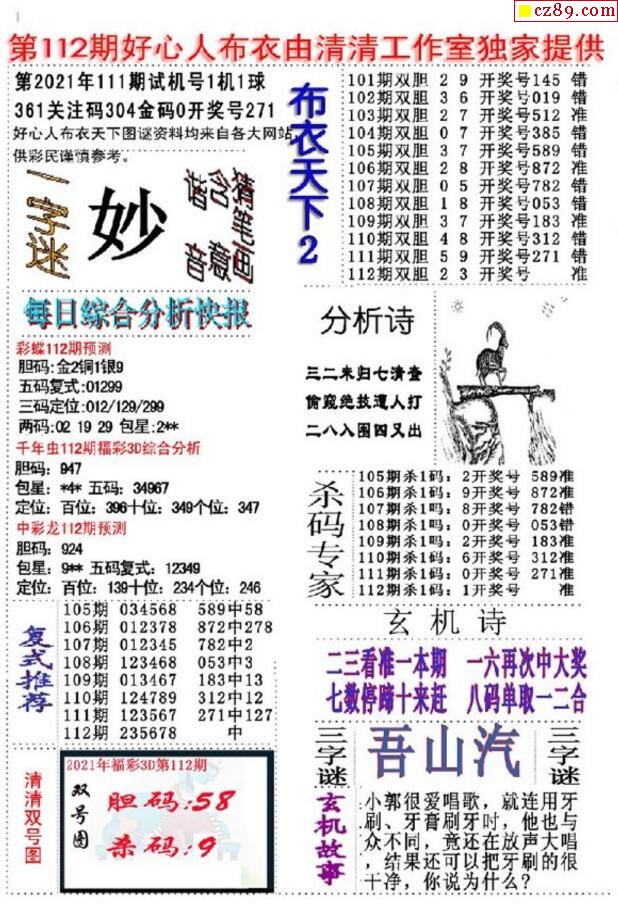 cz89.com
第112期好心人布衣由清清工作室独家提供
第2021年111期试机号1机1球
361关注码304金码0开奖号271
好心人布衣天下图谜资料均来自各大网站
供彩民谨慎参考。
一字迷
妙
猜笔画
含意
谐音
布衣天下2
101期双胆 2 9 开奖号145 错
102期双胆 3 6 开奖号019 错
103期双胆 2 7 开奖号512 准
104期双胆 0 7 开奖号385 错
105期双胆 3 7 开奖号589 错
106期双胆 2 8 开奖号872 准
107期双胆 0 5 开奖号782 错
108期双胆 1 8 开奖号053 错
109期双胆 3 7 开奖号183 准
110期双胆 4 8 开奖号312 错
111期双胆 5 9 开奖号271 错
112期双胆 2 3 开奖号 准
每日综合分析快报
彩蝶112期预测
胆码:金2铜1银9
五码复式:01299
三码定位:012/129/299
两码:02 19 29 包星:2**
千年虫112期福彩3D综合分析
胆码: 947
包星: *4* 五码: 34967
定位: 百位: 396十位: 349个位: 347
中彩龙112期预测
胆码: 924
包星: 9** 五码复式: 12349
定位: 百位: 139十位: 234个位: 246
分析诗
三二未归七清查
偷窥绝技遭人打
二八入围四又出
杀码专家
105期杀1码: 2开奖号 589准
106期杀1码: 9开奖号 872准
107期杀1吗: 8开奖号 782错
108期杀1吗: 0开奖号 053错
109期杀1码: 2开奖号 183准
110期杀1码: 6开奖号 312准
111期杀1码: 0开奖号 271准
112期杀1码: 1开奖号 准
复式推荐
105期 034568 589中58
106期 012378 872中278
107期 012345 782中2
108期 123468 053中3
109期 013467 183中13
110期 124789 312中12
111期 123567 271中127
112期 235678 中
玄机诗
二三看准一本期 一六再次中大奖
七数停蹄十来赶 八码单取一二合
三字谜
吾山汽
三字谜
清清双号图
2021年福彩3D第112期
双号图
胆码:58
杀码:9
玄机故事
小郭很爱唱歌，就连用牙
刷、牙膏刷牙时，他也与
众不同，竟还在放声大唱
，结果还可以把牙刷的很
干净，你说为什么?